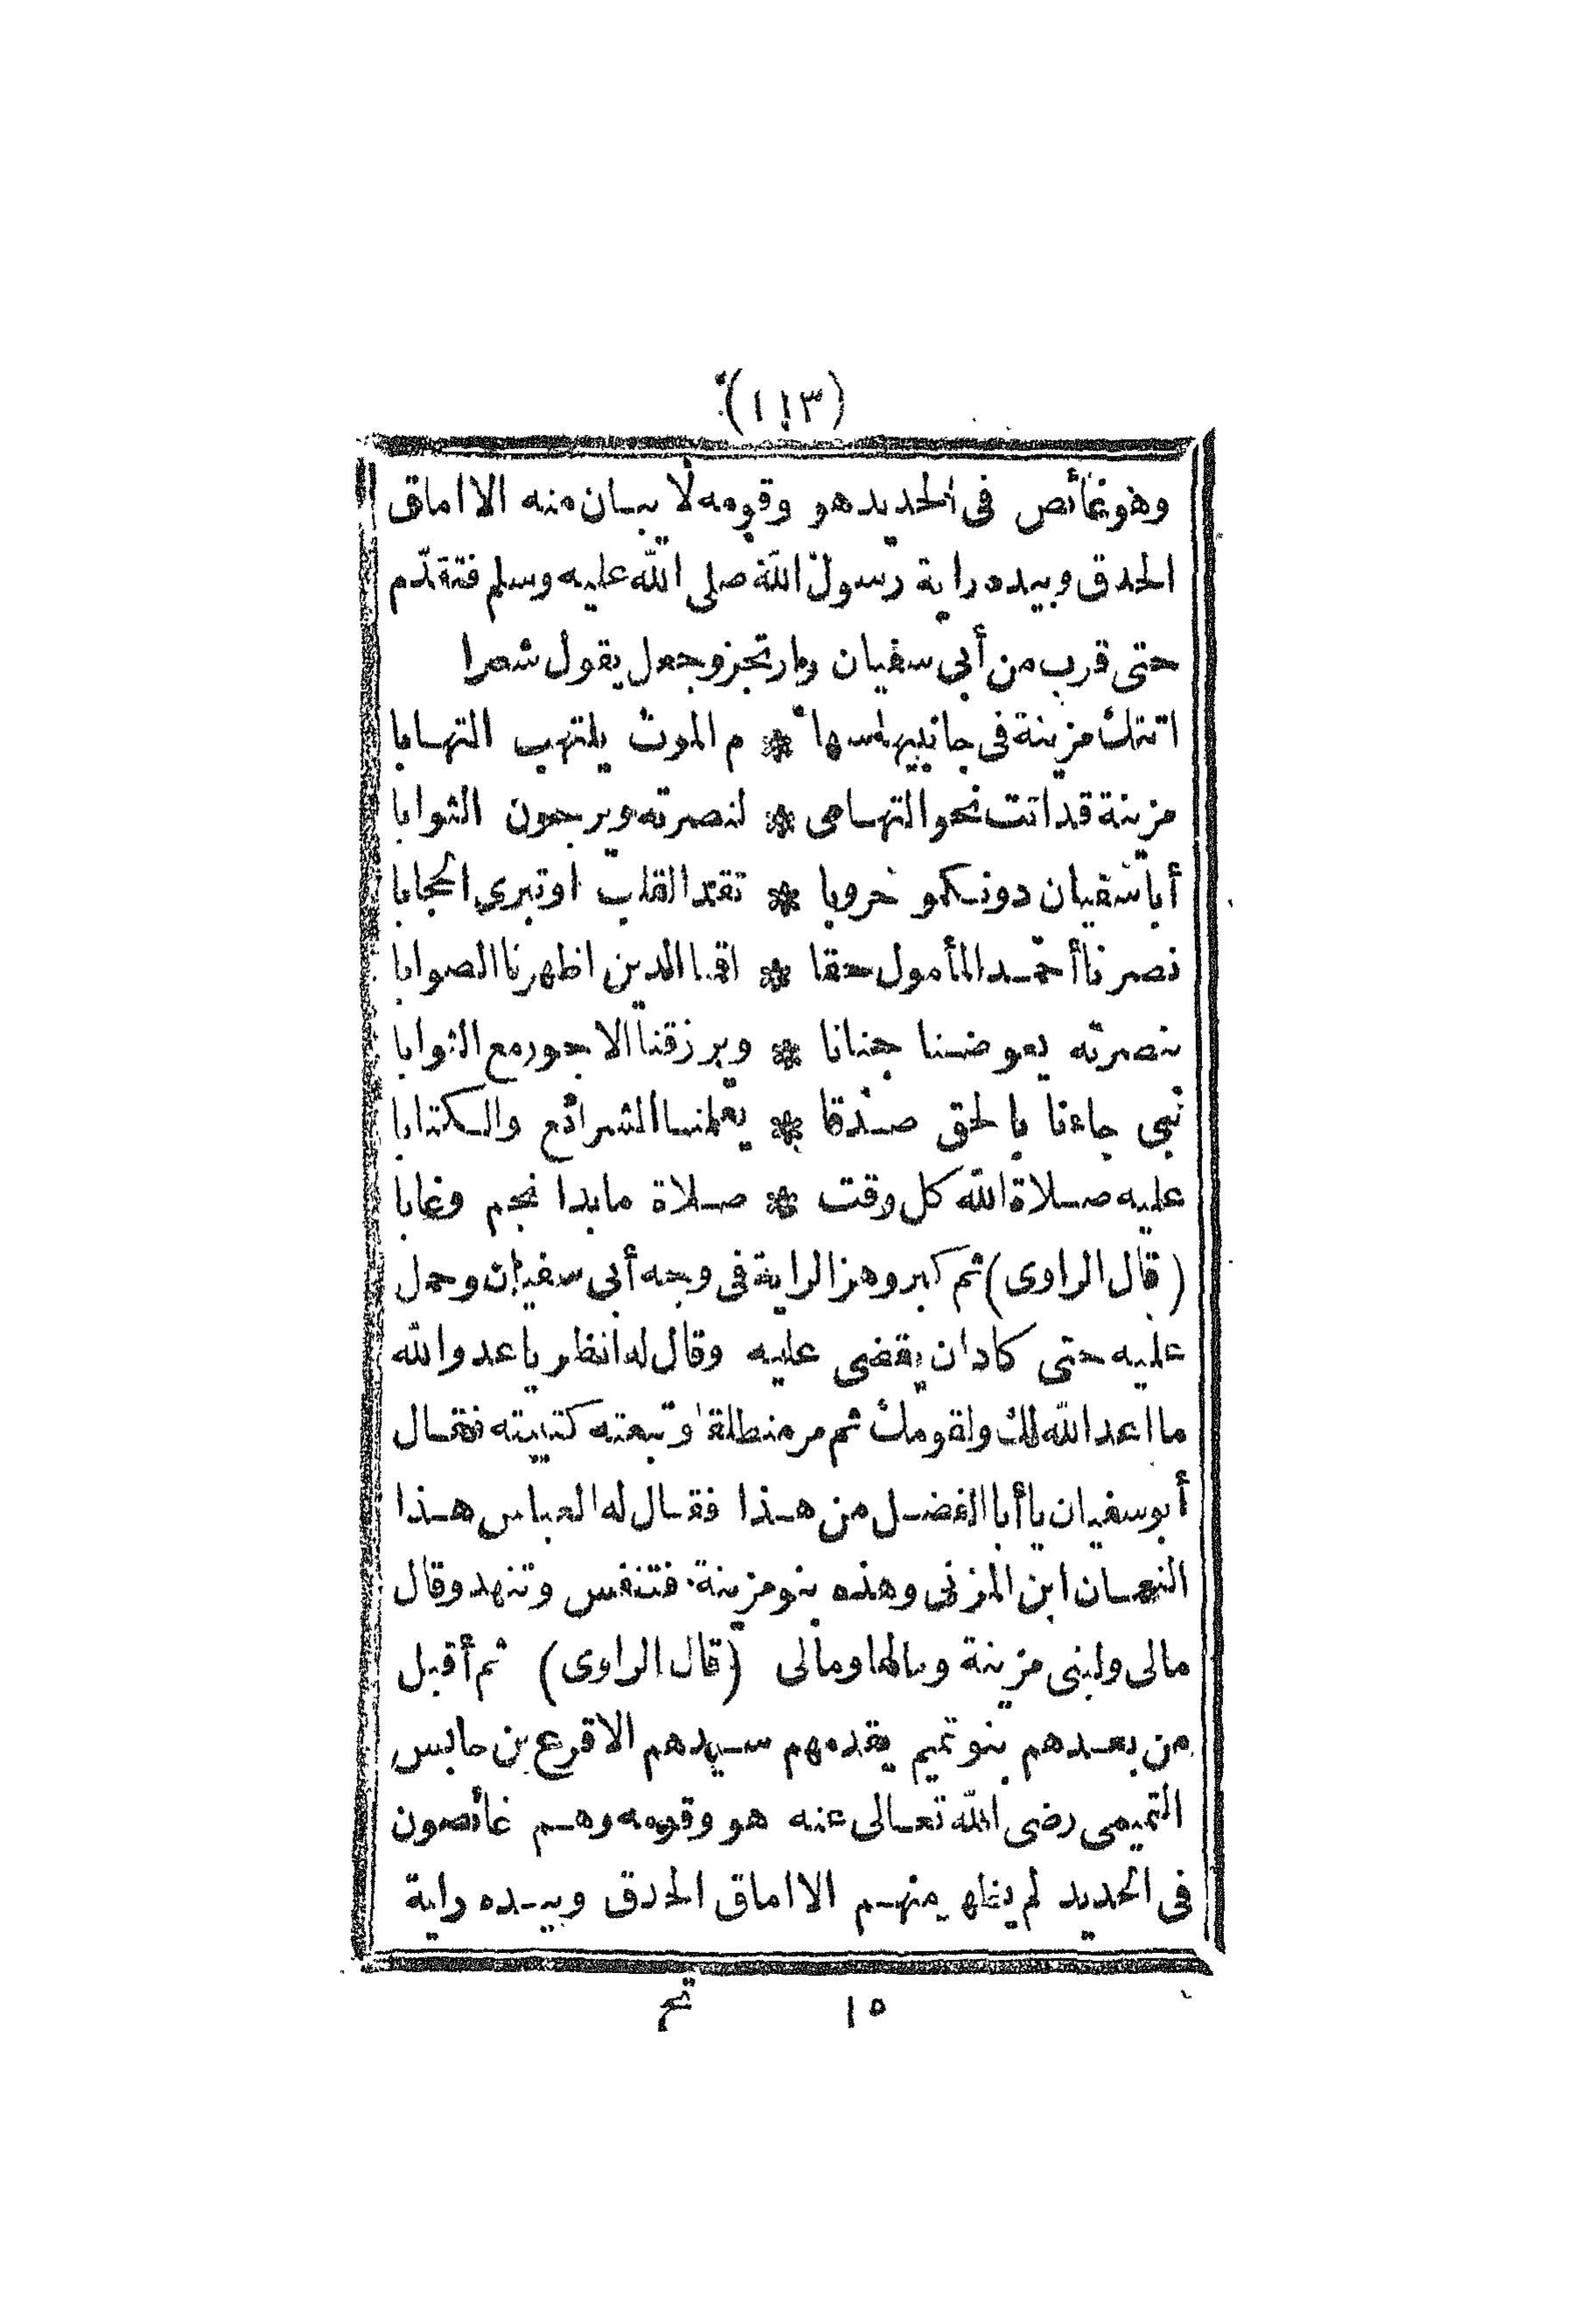 (١١٣)
وهو غائص في الحديد هو وقومه لا يبان منه الا اماق
الحدق وبيده راية رسول الله صلى الله عليه وسلم فتقدّم
حتى قرب من أبي سفيان وارتجز وجعل يقول شعرا
اتتك مزينة فى جانبيها سها * م الموت يلتهب التهابا
مزينة قد اتت نحو التهامى * لنصرته ويرجون الثوابا
أبا سفيان دونكمو حروبا * تقد القلب او تبرى الحجابا
نصرنا أحمد المأمول حقا * اقمنا الدين اظهرنا الصوابا
بنصرته يعوضنا جنانا * ويرزقنا الاجور مع الثوابا
نبى جاءنا بالحق صدقا * يعلمنا الشرائع والكتابا
عليه صلاة الله كل وقت * صلاة ما بدا نجم وغابا
(قال الراوى) ثم كبر وهز الراية فى وجه أبى سفيان وحمل
عليه حتى كاد ان يقضى عليه وقال له انظر ياعدو الله
ما اعد الله لك ولقومك ثم مر منطلقا وتبعته كتيبته فقال
أبو سفيان يا أبا الفضل من هذا فقال له العباس هذا
النعمان ابن المزنى وهذه بنو مزينة فتنفس وتنهد وقال
مالى ولبنى مزينة ومالها ومالى (قال الراوى) ثم أقبل
من بعدهم بنو تميم يقدمهم سيدهم الاقرع بن حابس
التميمى رضى الله تعالى عنه هو وقومه وهم غائصون
فى الحديد لم يظهر منهم الا اماق الحدق وبيده راية
١٥ فتح